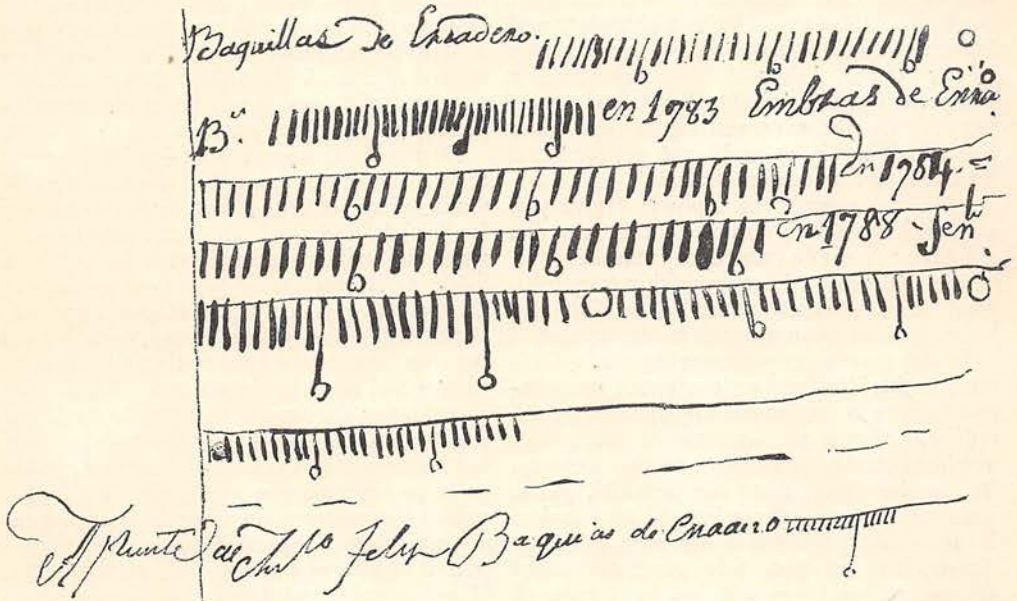 Baquillas de Enradero.
B.ª en 1783 Embras de Erra.
en 1784. =
en 1788 - Jen
Apunte de Felip Baquias de Enaaero